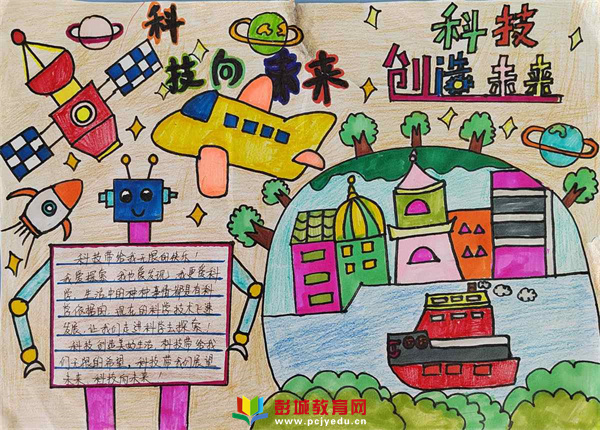 科
技向未来
科技
创造未来
科技带给我无限的快乐！
我爱探索，我也爱发现，我更爱科
技。生活中的种种事情都是有科
技依据的，现在的科学技术飞速
发展，让我们走进科技去探索！
科技创造美好生活，科技带给我
们无限的希望，科技带我们展望
未来，科技向未来！
彭城教育网
www.pcjyedu.cn